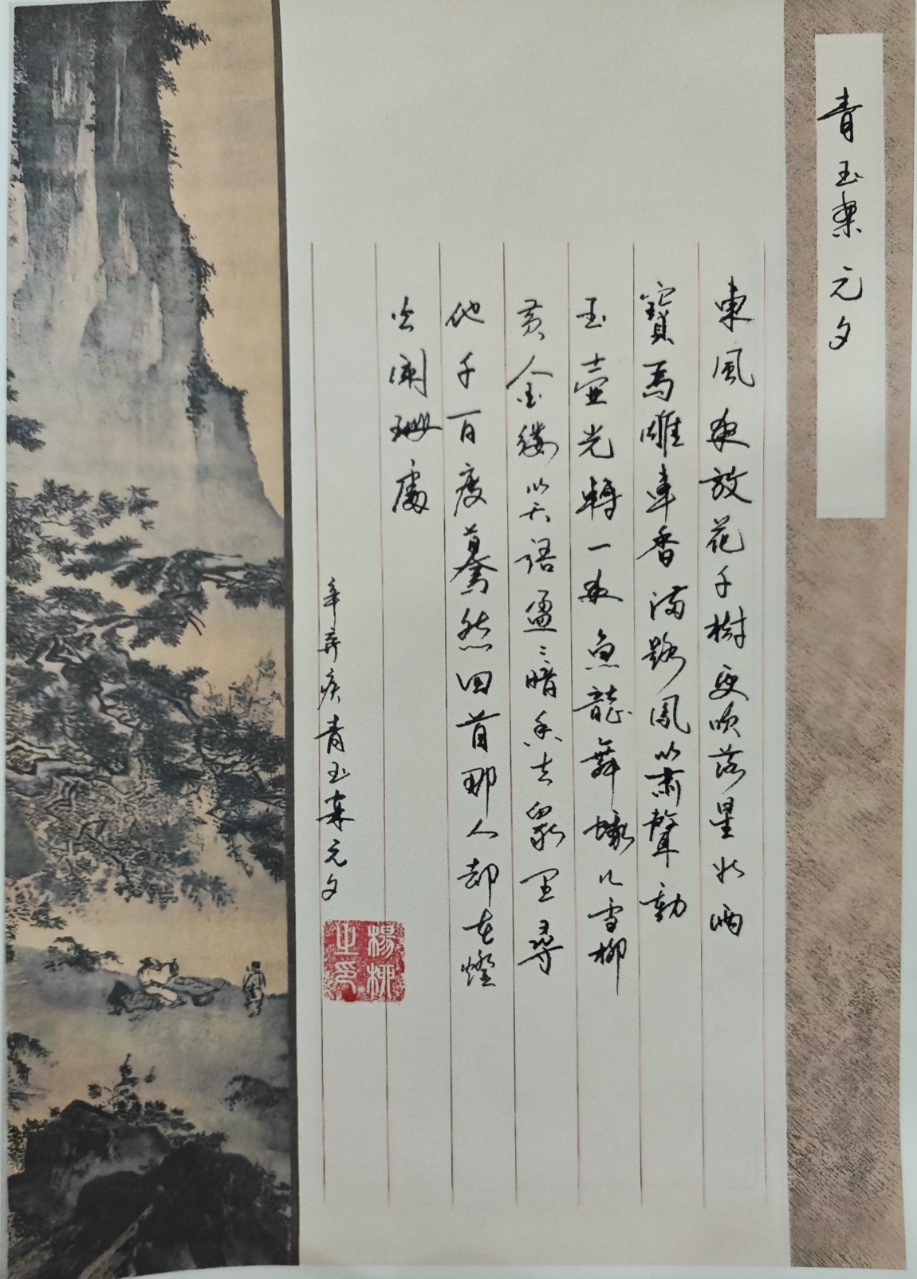 青玉案 元夕
東風夜放花千樹更吹落星如雨
寶馬雕車香滿路鳳簫聲動
玉壺光轉一夜魚龍舞蛾儿雪柳
黃金縷笑語盈〻暗香去眾里尋
他千百度驀然回首那人却在燈
火闌珊處
辛弃疾青玉案元夕
楊柳之印